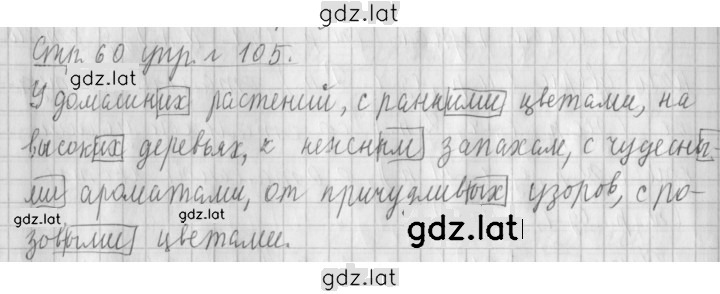 gdz.lat
Стр. 60 упр. № 105.
gdz.lat
У домашних растений, с ранними цветами, на
высоких деревьях, к нежным запахам, с чудесны-
ми ароматами, от причудливых узоров, с ро-
gdz.lat gdz.lat gdz.lat
зовыми цветами.
gdz.lat